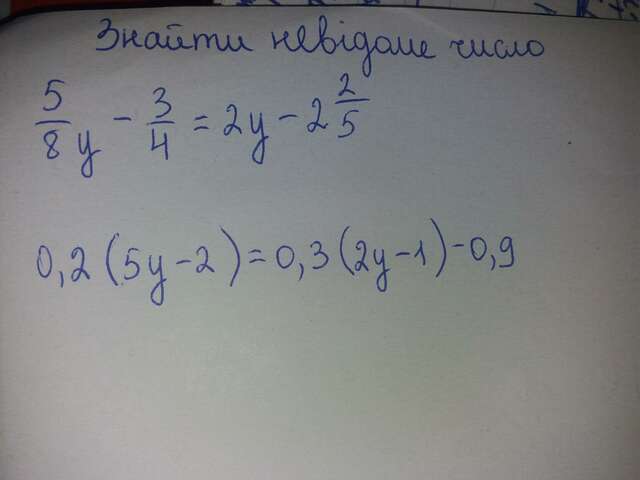 Знайти невідоме число
5/8 y - 3/4 = 2y - 2 2/5
0,2(5y-2)=0,3(2y-1)-0,9